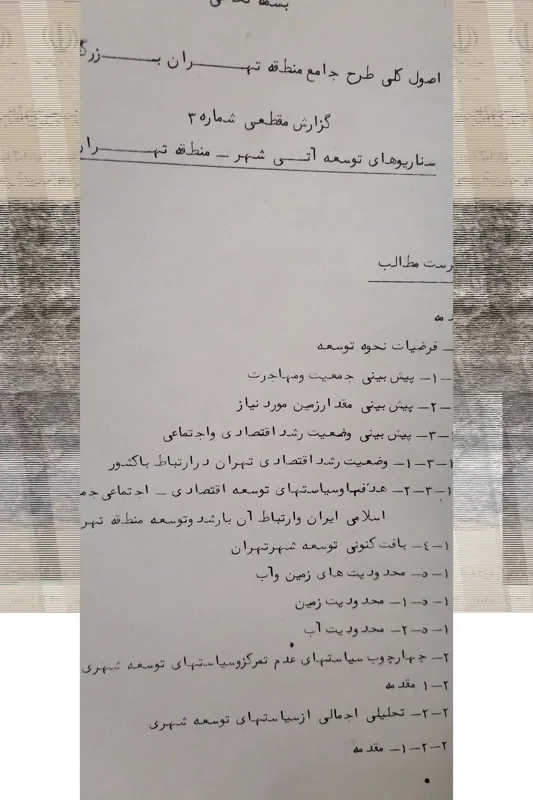 بسمه تعالی
اصول کلی طرح جامع منطقه تهـــران بـــزرگ
گزارش مقطعی شماره ۳
سناریوهای توسعه آتـی شهر ـ منطقه تهـــران
رست مطالب
دمه
ـ فرضیات نحوه توسعه
ـ۱ـ پیش بینی جمعیت ومهاجرت
ـ۲ـ پیش بینی مقدارزمین مورد نیاز
۱ـ۳ـ پیش بینی وضعیت رشد اقتصادی واجتماعی
۱ـ۳ـ۱ـ وضعیت رشد اقتصادی تهران درارتباط باکشور
۱ـ۳ـ۲ـ هدفهاوسیاستهای توسعه اقتصادی ـ اجتماعی جم
اسلامی ایران وارتباط آن بارشد وتوسعه منطقه تهر
۱ـ٤ـ بافت کنونی توسعه شهرتهران
۱ـ۵ـ محدودیت های زمین وآب
۱ـ۵ـ۱ـ محدودیت زمین
۱ـ۵ـ۲ـ محدودیت آب
۲ـ چهارچوب سیاستهای عدم تمرکزوسیاستهای توسعه شهری
۲ـ۱ مقدمه
۲ـ۲ـ تحلیلی اجمالی ازسیاستهای توسعه شهری
۲ـ۲ـ۱ـ مقدمه